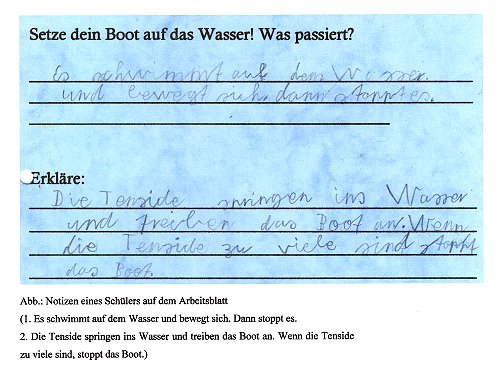 Setze dein Boot auf das Wasser! Was passiert?
Es schwimmt auf dem Wasser
und bewegt sich. dann stoppt es.
Erkläre:
Die Tenside springen ins Wasser
und treiben das Boot an. Wenn
die Tenside zu viele sind stoppt
das Boot.
Abb.: Notizen eines Schülers auf dem Arbeitsblatt
(1. Es schwimmt auf dem Wasser und bewegt sich. Dann stoppt es.
2. Die Tenside springen ins Wasser und treiben das Boot an. Wenn die Tenside
zu viele sind, stoppt das Boot.)